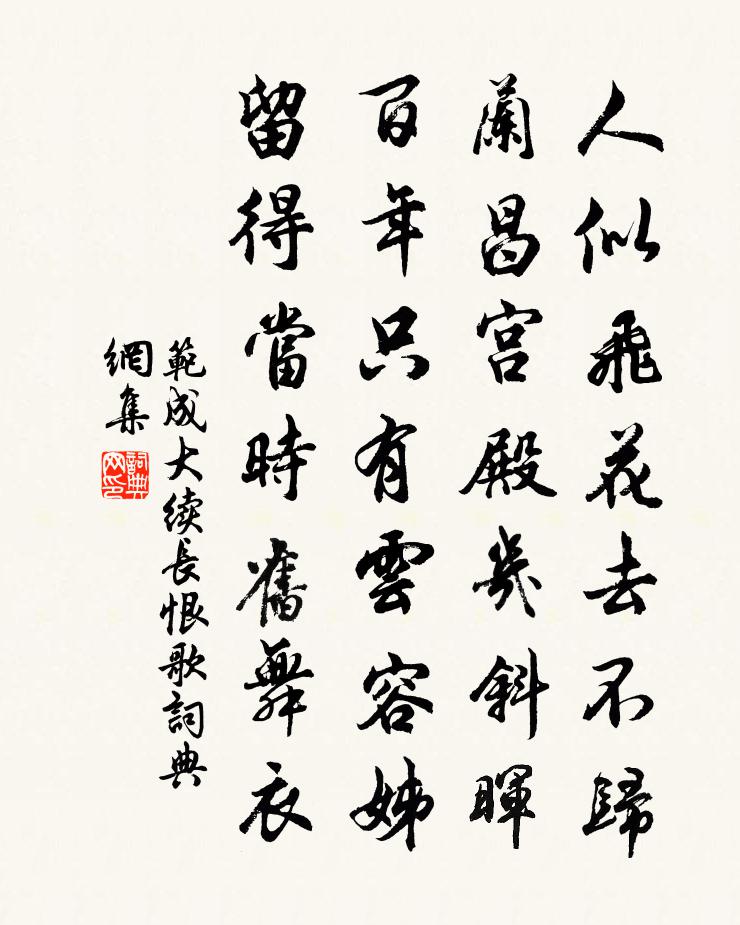 人似飛花去不歸
蘭昌宮殿幾斜暉
百年只有雲容姊
留得當時舊舞衣
範成大續長恨歌詞典
網集
詞典網印